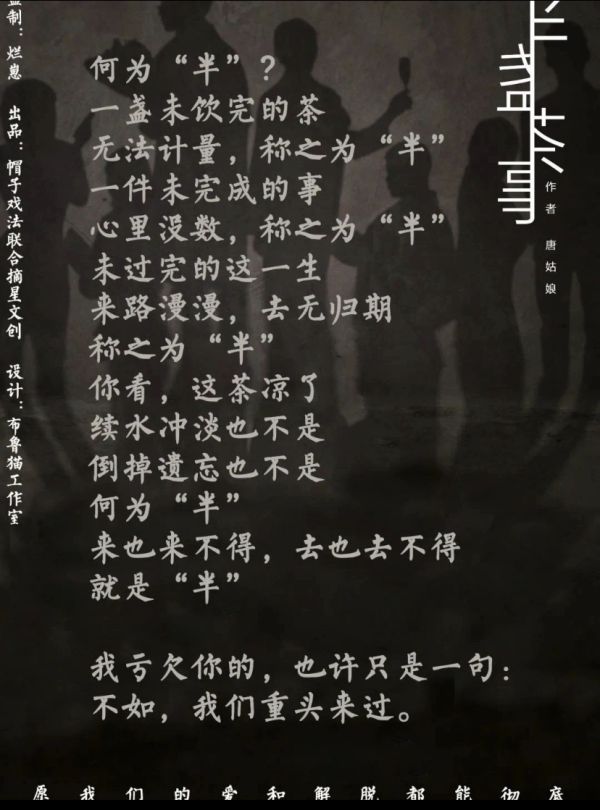 作者 唐姑娘
何为“半”?
一盏未饮完的茶
无法计量，称之为“半”
一件未完成的事
心里没数，称之为“半”
未过完的这一生
来路漫漫，去无归期
称之为“半”
你看，这茶凉了
续水冲淡也不是
倒掉遗忘也不是
何为“半”
来也来不得，去也去不得
就是“半”
我亏欠你的，也许只是一句：
不如，我们重头来过。
监制：烂崽 出品：帽子戏法联合摘星文创 设计：布鲁猫工作室
愿我们的爱和解脱都能彻底